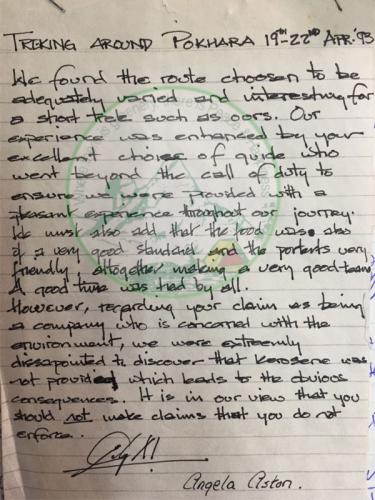 TREKING AROUND POKHARA 19TH-22ND APR.'93
We found the route choosen to be
adequately varied and interesting for
a short trek such as oors. Our
experience was enhanced by your
excellent choise of guide who
went beyond the call of duty to
ensure we were provided with a
pleasant experience throughout our journey.
We must also add that the food was also
of a very good standard and the portents very
friendly, altogether making a very good team
A good time was had by all.
However, regarding your claim as being
a company who is concerned with the
environment, we were extremly
dissapointed to discover that kerosene was
not provided which leads to the obvious
consequences. It is in our view that you
should not make claims that you do not
enforce.
Angela Aston.